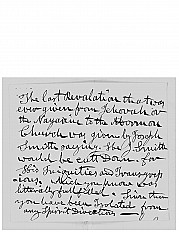 The last Revelation that was
ever given from Jehovah or
the Nazarene to the Mormon
Church was given by Joseph
Smith saying The J. Smith
would be cutt Down. For
His Iniquities and Transgress
ions. Which you know was
litterally fulfilled - Since then
you have been Isolated from
any Spirit Direction -